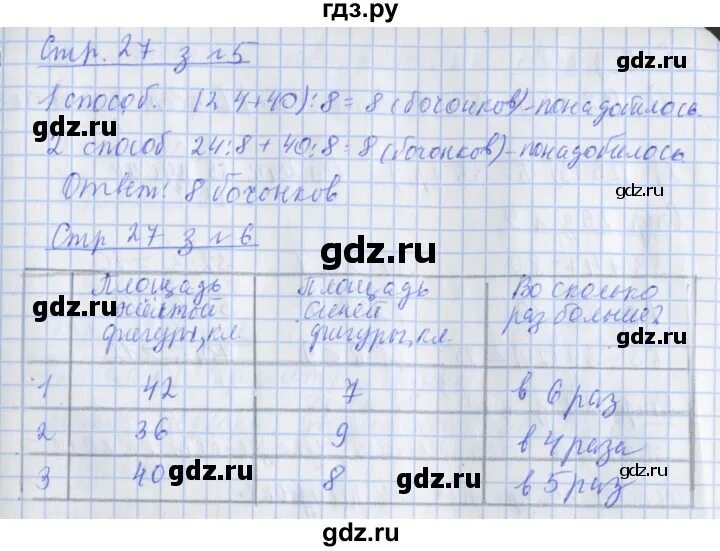 гдз.ру
Стр. 27 з №5
1 способ. (24+40):8=8 (бочонков)-понадобилось.
gdz.ru gdz.ru
2 способ 24:8+40:8=8 (бочонков)-понадобилось
Ответ: 8 бочонков
gdz.ru
Стр 27 з №6
gdz.ru
Площадь жёлтой фигуры, кл. Площадь синей фигуры, кл. Во сколько раз больше?
gdz.ru gdz.ru
1 42 7 в 6 раз
2 36 9 в 4 раза
gdz.ru
3 40 8 в 5 раз
gdz.ru gdz.ru
gdz.ru